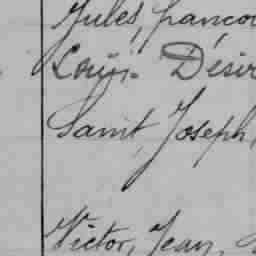 Jules, françoi
Louis. Désir
Saint, Joseph,
Victor, Jean,